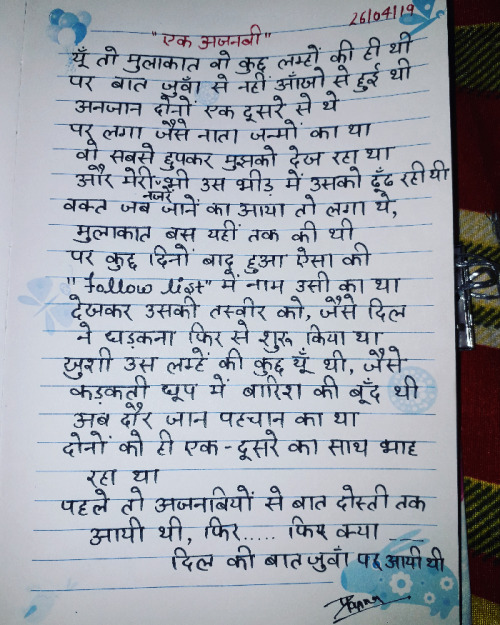 26/04/19
"एक अजनबी"
यूँ तो मुलाकात वो कुछ लम्हों की ही थी
पर बात जुवाँ से नहीं आँखो से हुई थी
अनजान दोनों एक दूसरे से थे
पर लगा जैसे नाता जन्मों का था
वो सबसे छुपकर मुझको देख रहा था
और मेरी नजरें भी उस भीड़ में उसको ढूँढ रही थी
वक्त जब जानें का आया तो लगा ये,
मुलाकात बस यहीं तक की थी
पर कुछ दिनों बाद हुआ ऐसा की
"follow list" में नाम उसी का था
देखकर उसकी तस्वीर को, जैसे दिल
ने धड़कना फिर से शुरू किया था
खुशी उस लम्हें की कुछ यूँ थी, जैसे
कड़कती धूप में बारिश की बूँद थी
अब दौर जान पहचान का था
दोनों को ही एक-दूसरे का साथ भाह
रहा था
पहले तो अजनबियों से बात दोस्ती तक
आयी थी, फिर..... फिर क्या __
दिल की बात जुवाँ पर आयी थी